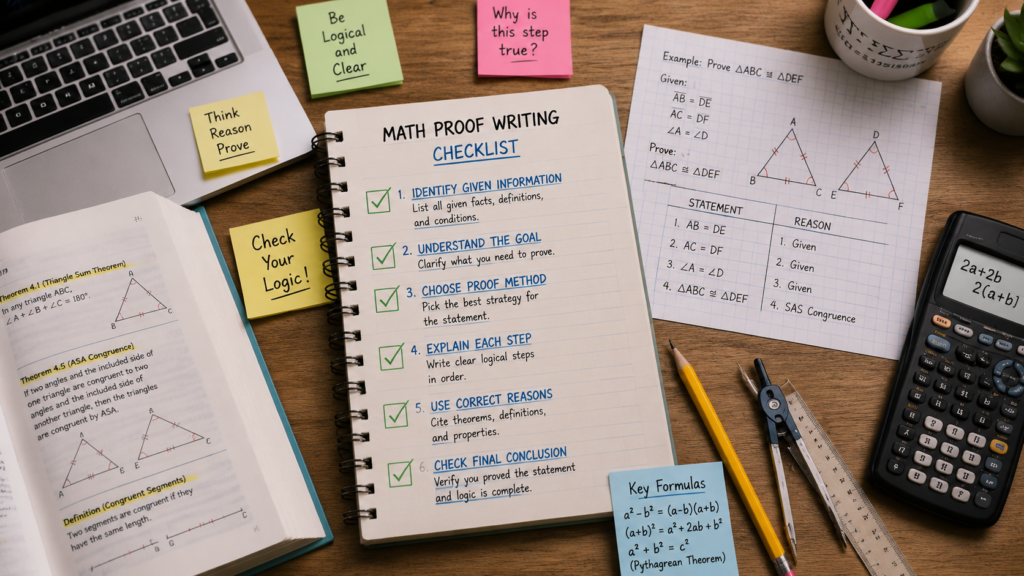 Be
Logical
and
Clear
Why is
this step
true?
Think
Reason
Prove
Check
Your
Logic!
MATH PROOF WRITING
CHECKLIST
1. IDENTIFY GIVEN INFORMATION
List all given facts, definitions,
and conditions.
2. UNDERSTAND THE GOAL
Clarify what you need to prove.
3. CHOOSE PROOF METHOD
Pick the best strategy for
the statement.
4. EXPLAIN EACH STEP
Write clear logical steps
in order.
5. USE CORRECT REASONS
Cite theorems, definitions,
and properties.
6. CHECK FINAL CONCLUSION
Verify you proved the statement
and logic is complete.
Example: Prove △ABC ≅ △DEF
Given:
AB = DE
AC = DF
∠A = ∠D
Prove:
△ABC ≅ △DEF
A
B
C
D
E
F
STATEMENT REASON
1. AB = DF 1. Given
2. AC = DF 2. Given
3. ∠A = ∠D 3. Given
4. △ABC ≅ △DEF 4. SAS Congruence
Theorem 4.1 (Triangle Sum Theorem)
In any triangle ABC,
∠A + ∠B + ∠C = 180°.
A
B
C
Theorem 4.5 (ASA Congruence)
If two angles and the included side of
one triangle are congruent to two
angles and the included side of
another triangle, then the triangles
are congruent by ASA.
Definition (Congruent Segments)
Two segments are congruent if they
have the same length.
Key Formulas
a² - b² = (a-b)(a+b)
(a+b)² = a² + 2ab + b²
a² + b² = c²
(Pythagrean Theorem)
2a+2b
2(a+b)